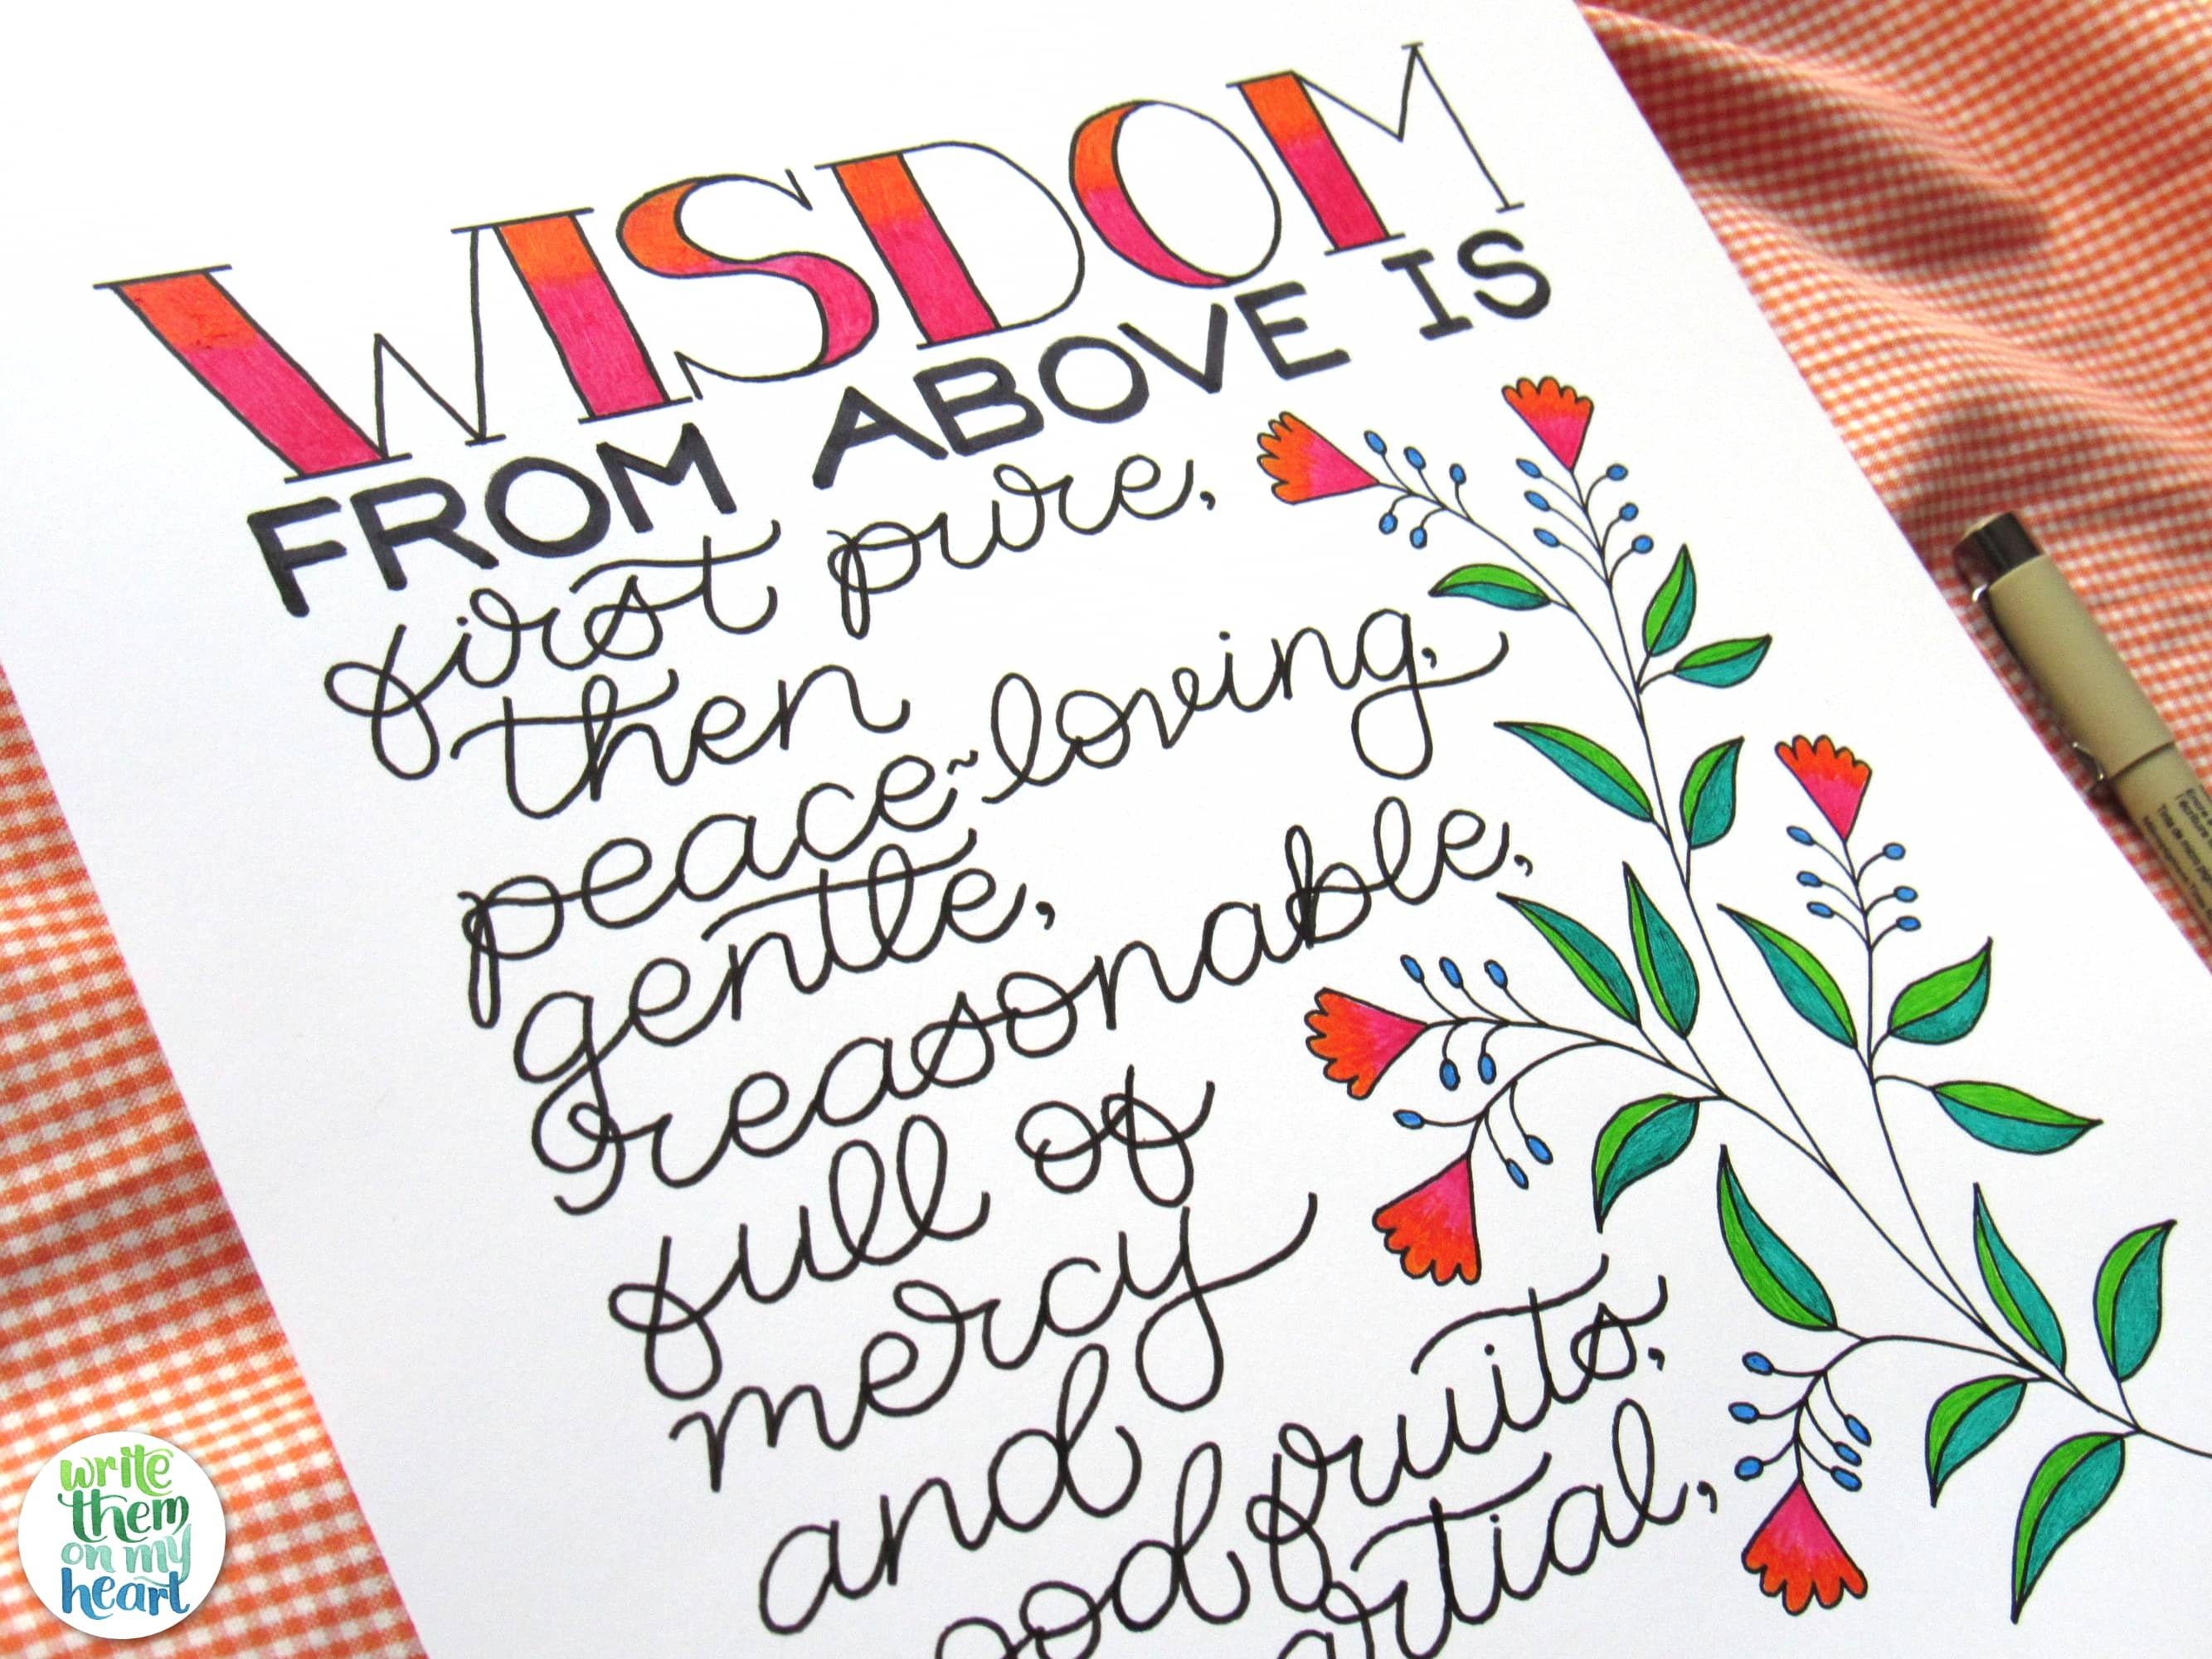 WISDOM
FROM ABOVE IS
first pure,
then
peace-loving,
gentle,
reasonable,
full of
mercy
and
good fruits,
write
them
on my
heart